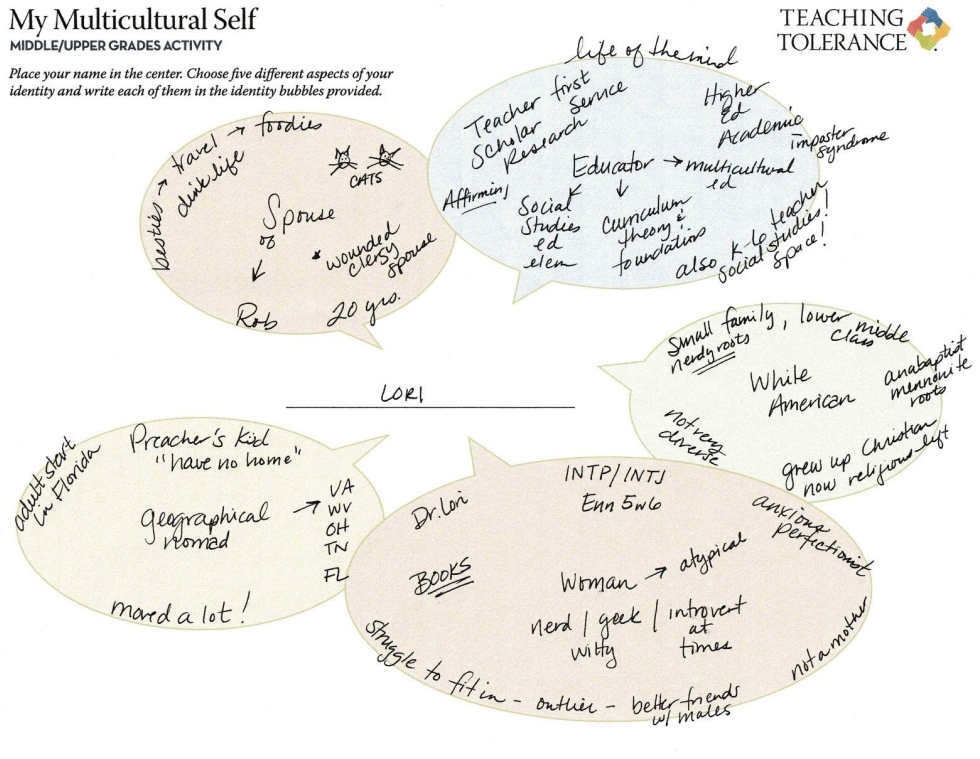 My Multicultural Self
MIDDLE/UPPER GRADES ACTIVITY
Place your name in the center. Choose five different aspects of your
identity and write each of them in the identity bubbles provided.
TEACHING
TOLERANCE
besties → travel → foodies
dink life
CATS
Spouse
of
↓
Rob
* wounded
clergy
spouse
20 yrs.
life of the mind
Teacher first
Scholar Service
Research
Higher
Ed
Academic
imposter
syndrome
Affirming
Educator → multicultural
ed
Social
Studies
ed
elem
Curriculum
theory &
foundations
also K-6 teacher
social studies!
space!
LORI
Small family, lower middle
class
nerdy roots
White
American
anabaptist
mennonite
roots
not very
diverse
grew up Christian
now religious-left
adult start
in Florida
Preacher's Kid
"have no home"
geographical →
nomad
VA
WV
OH
TN
FL
moved a lot!
INTP/INTJ
Enn 5w6
Dr. Lori
anxious
perfectionist
BOOKS
Woman → atypical
nerd / geek / introvert
witty
at
times
not a mother
struggle to fit in - outlier - better friends
w/ males